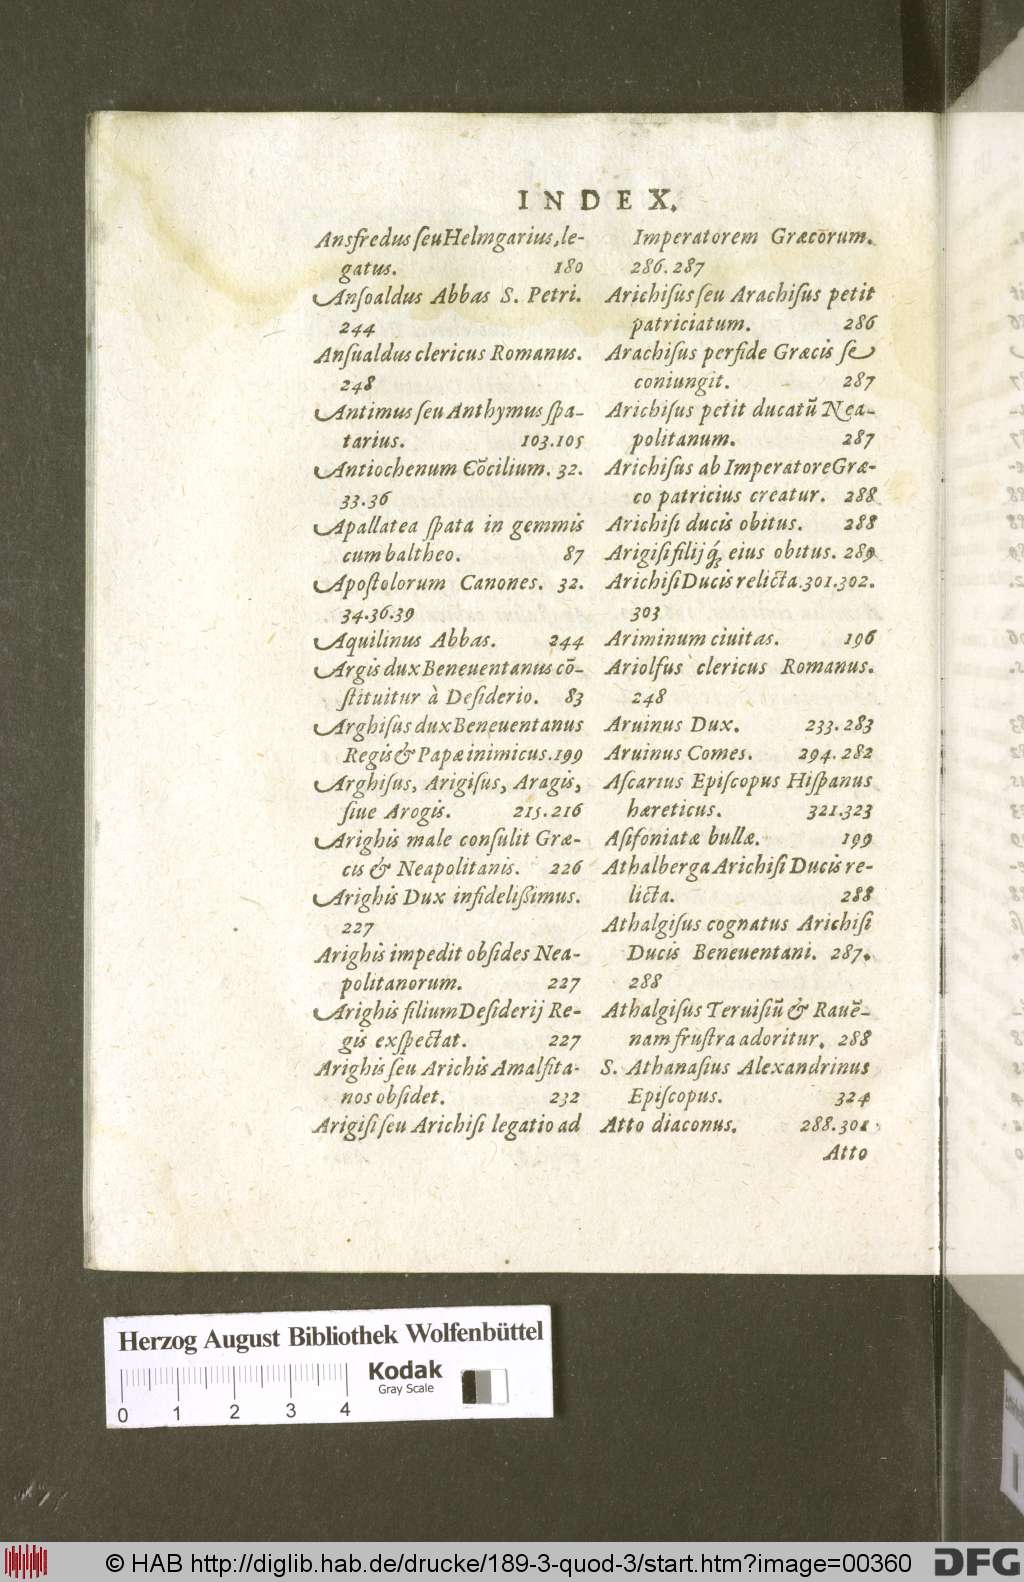 INDEX.
Ansfredus ſeu Helmgarius, le-
gatus. 180
Anſoaldus Abbas S. Petri.
244
Anſualdus clericus Romanus.
248
Antimus ſeu Anthymus ſpa-
tarius. 103.105
Antiochenum Cōcilium. 32.
33.36
Apallatea ſpata in gemmis
cum baltheo. 87
Apoſtolorum Canones. 32.
34.36.39
Aquilinus Abbas. 244
Argis dux Beneuentanus cō-
ſtituitur à Deſiderio. 83
Arghiſus dux Beneuentanus
Regis & Papæ inimicus. 199
Arghiſus, Arigiſus, Aragis,
ſiue Arogis. 215.216
Arighis male conſulit Græ-
cis & Neapolitanis. 226
Arighis Dux infideliſſimus.
227
Arighis impedit obſides Nea-
politanorum. 227
Arighis filium Deſiderij Re-
gis exſpectat. 227
Arighis ſeu Arichis Amalfita-
nos obſidet. 232
Arigiſi ſeu Arichiſi legatio ad
Imperatorem Græcorum.
286.287
Arichiſus ſeu Arachiſus petit
patriciatum. 286
Arachiſus perfide Græcis ſe
coniungit. 287
Arichiſus petit ducatū Nea-
politanum. 287
Arichiſus ab Imperatore Græ-
co patricius creatur. 288
Arichiſi ducis obitus. 288
Arigiſi filij q́; eius obitus. 289
Arichiſi Ducis relicta. 301.302.
303
Ariminum ciuitas. 196
Ariolfus clericus Romanus.
248
Aruinus Dux. 233.283
Aruinus Comes. 294.282
Aſcarius Epiſcopus Hiſpanus
hæreticus. 321.323
Aſifoniatæ bullæ. 199
Athalberga Arichiſi Ducis re-
licta. 288
Athalgiſus cognatus Arichiſi
Ducis Beneuentani. 287.
288
Athalgiſus Teruiſiū & Rauē-
nam fruſtra adoritur. 288
S. Athanaſius Alexandrinus
Epiſcopus. 324
Atto diaconus. 288.301
Atto
Herzog August Bibliothek Wolfenbüttel
Kodak
Gray Scale
0 1 2 3 4
© HAB http://diglib.hab.de/drucke/189-3-quod-3/start.htm?image=00360
DFG